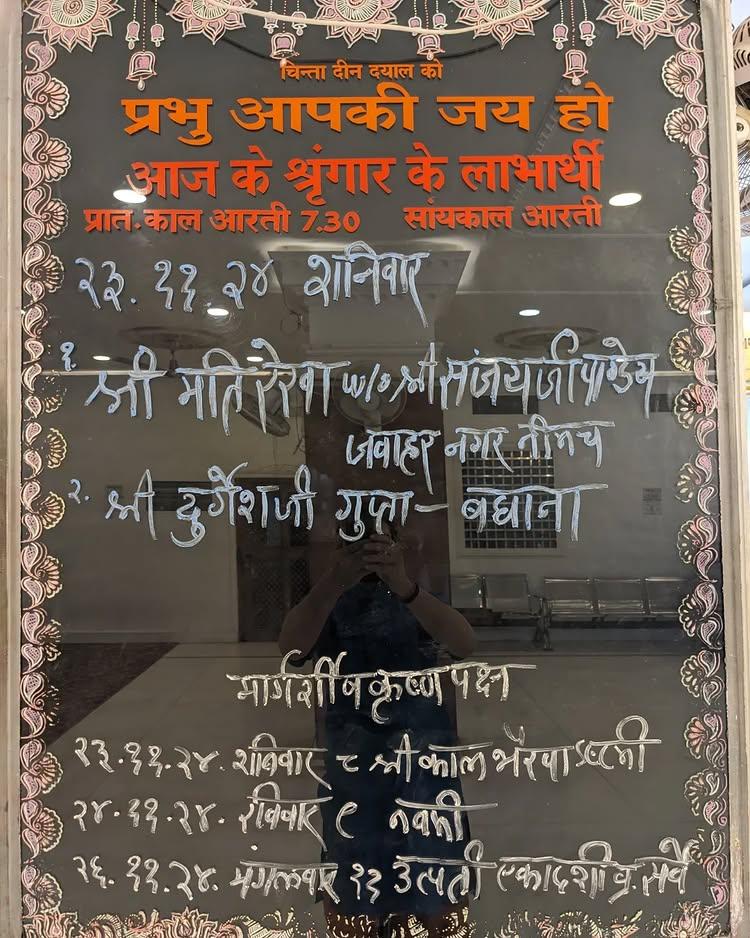 चिन्ता दीन दयाल को
प्रभु आपकी जय हो
आज के श्रृंगार के लाभार्थी
प्रात.काल आरती 7.30 सांयकाल आरती
२३. ११ २४ शनिवार
१. श्री मति रेखा w/o श्री संजयजी पाण्डेय
जवाहर नगर नीमच
२. श्री दुर्गेशजी गुप्ता - बघाना
मार्गशीर्ष कृष्ण पक्ष
२३.११.२४. शनिवार ८ श्री काल भैरवाष्टमी
२४.११.२४. रविवार ९ नवमी
२६.११.२४. मंगलवार ११ उत्पती एकादशी व्र. सर्वे